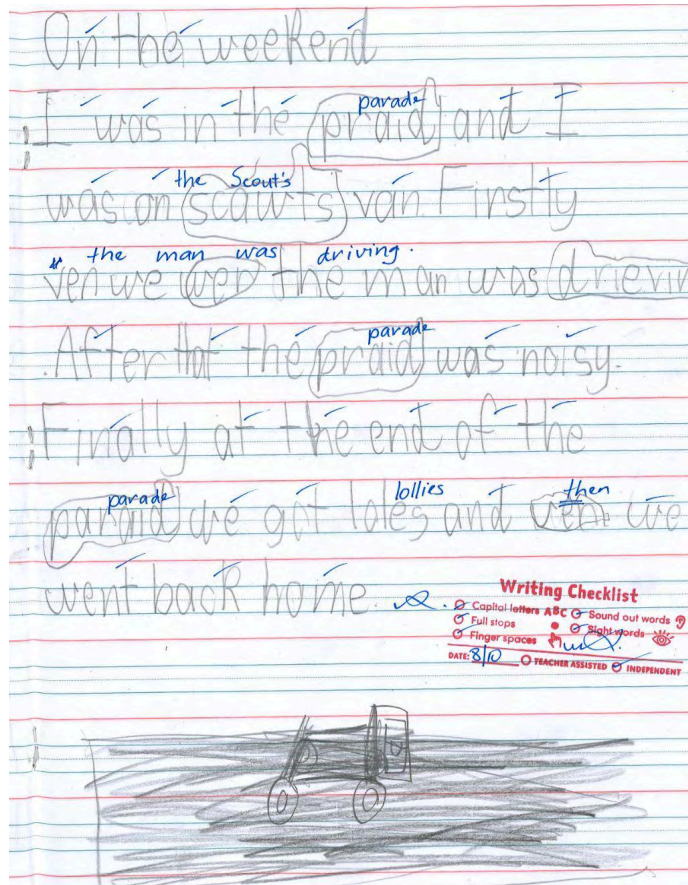 On the weekend
parade
I was in the praid and I
the Scout's
was on scauts van Firstly
the man was driving.
ven we wer the man was drievin
parade
After that the praid was noisy.
Finally at the end of the
parade lollies then
paraid we got loles and ven we
went back home.
Writing Checklist
Capital letters ABC Sound out words
Full stops Sight words
Finger spaces
DATE: 8/10 TEACHER ASSISTED INDEPENDENT